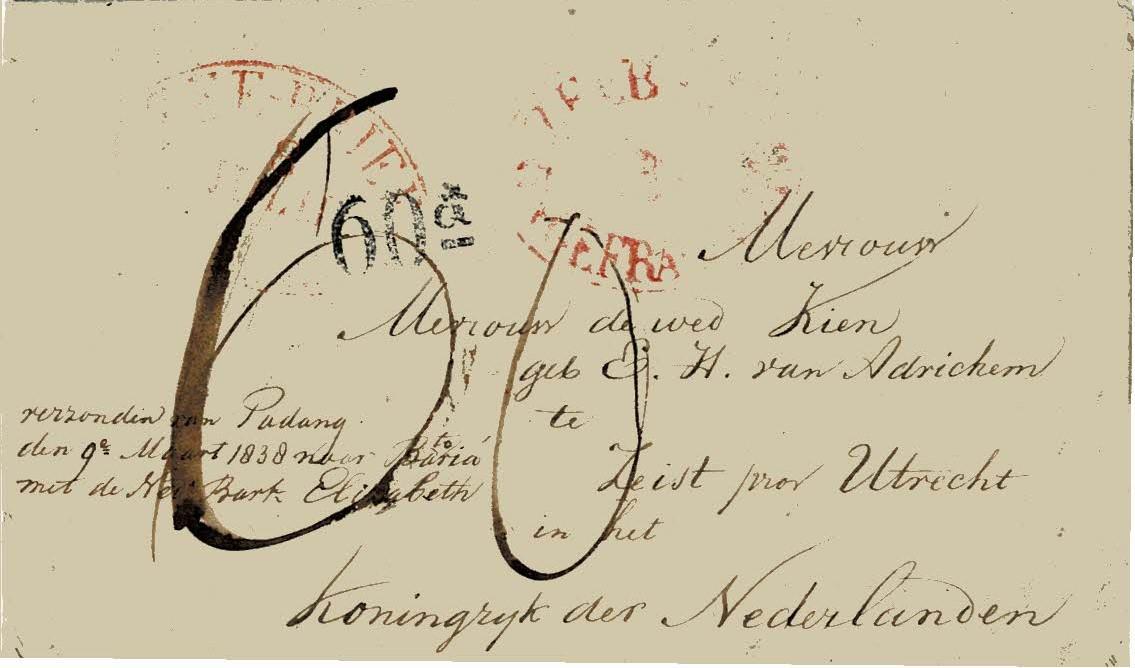 60 ct
60
Mevrouw
Mevrouw de wed Kien
geb E. H. van Adrichem
te
Zeist prov Utrecht
in het
Koningryk der Nederlanden
verzonden van Padang
den 9e Maart 1838 naar Batavia
met de Ned Bark Elisabeth